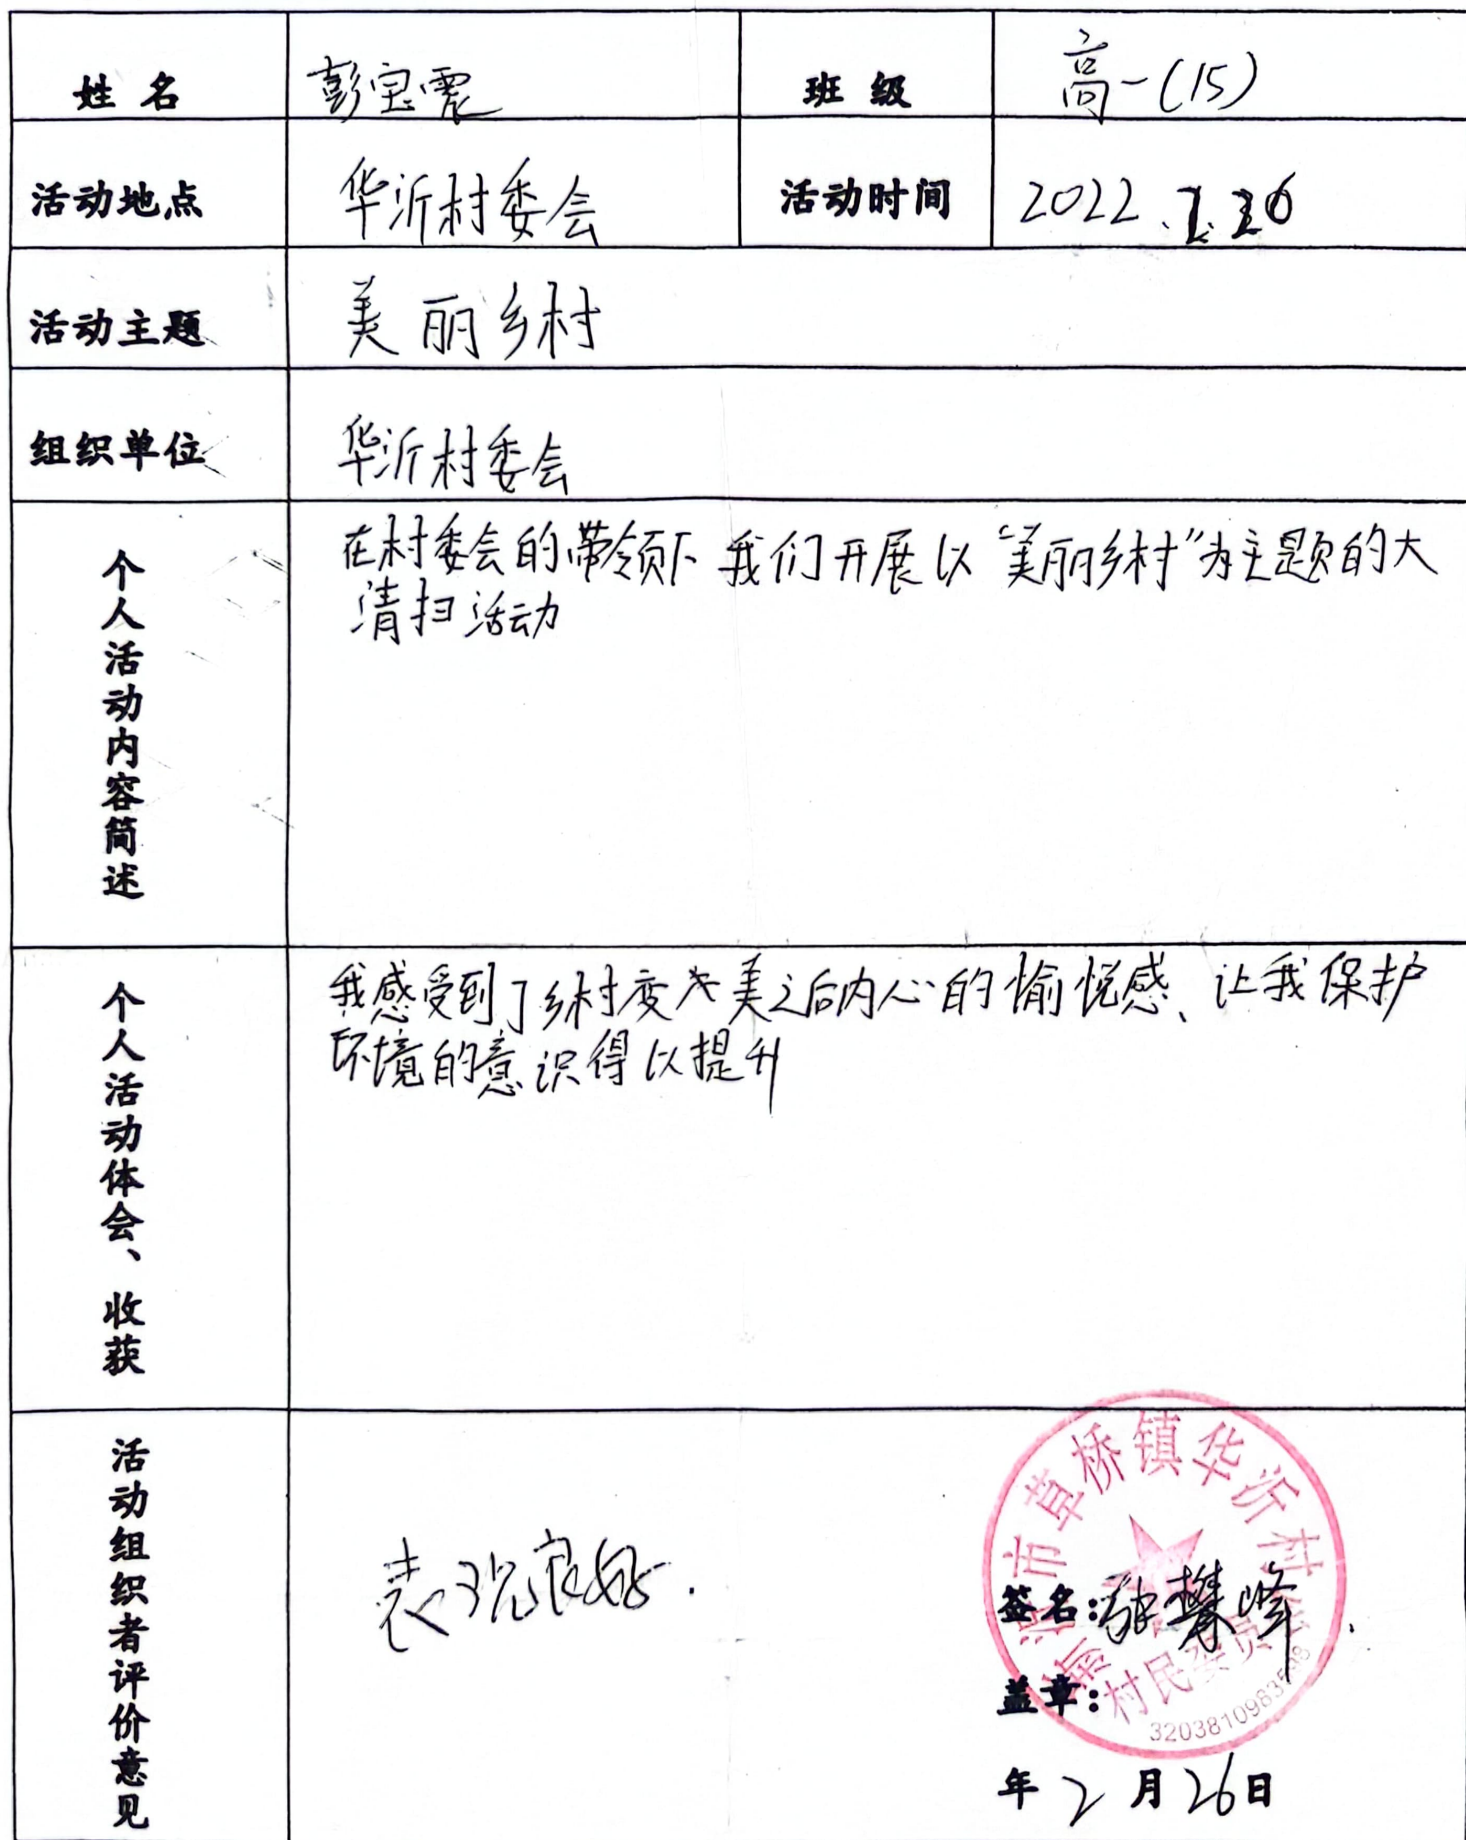 姓 名 彭宝震 班 级 高一(15)
活动地点 华沂村委会 活动时间 2022.
活动主题 美丽乡村
组织单位 华沂村委会
个人活动内容简述
在村委会的带领下 我们开展以“美丽乡村”为主题的大
清扫活动
个人活动体会、收获
我感受到了乡村变 美之后内心的愉悦感、让我保护
环境的意识得以提升
活动组织者评价意见
表现良好.
市草桥镇华沂村
村民委员会
签名:
盖章:
年 2 月 26 日